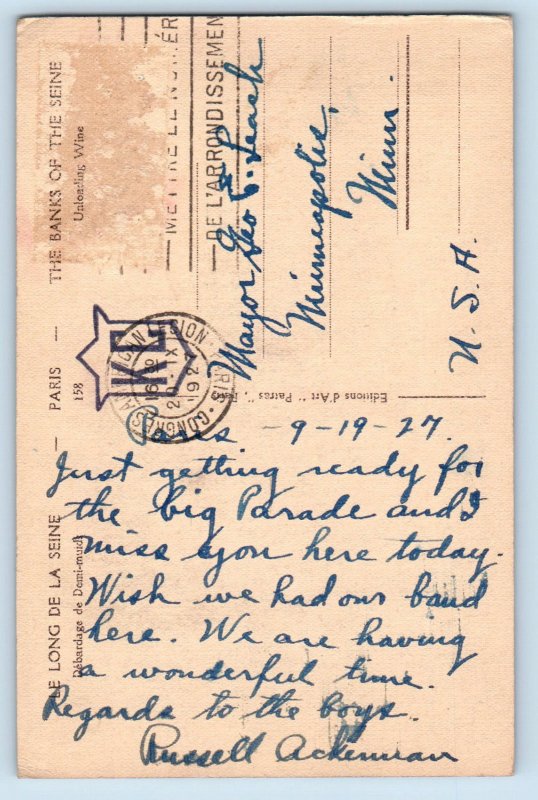 LE LONG DE LA SEINE — PARIS — THE BANKS OF THE SEINE
Débardage de Demi-muids 158 Unloading Wine
METTRE LE NUMÉR
DE L'ARRONDISSEMEN
CONGRES AMERICAN LEGION · PARIS ·
20 · IX
192
Mayor Geo E. Leach
Minneapolis,
Minn.
U. S. A.
Editions d'Art "Patras", Paris
Paris - 9-19-27.
Just getting ready for
the big Parade and I
miss you here today.
Wish we had our band
here. We are having
a wonderful time.
Regards to the boys.
Russell Ackerman